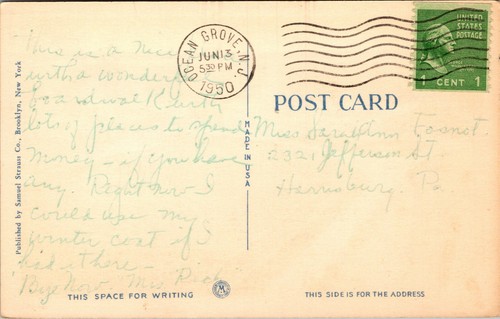 This is a nice
with a wonderful
boardwalk with
lots of places to spend
money - if you have
any. Right now I
could use my
winter coat if I
had it here -
Bye Now. Mrs
THIS SPACE FOR WRITING
Published by Samuel Strauss Co., Brooklyn, New York
MADE IN USA
OCEAN GROVE, N.J.
JUN 13
5 PM
1950
UNITED
STATES
POSTAGE
1 CENT 1
POST CARD
Miss Sara Ann
2321 Jefferson St
Harrisburg. Pa
THIS SIDE IS FOR THE ADDRESS
M